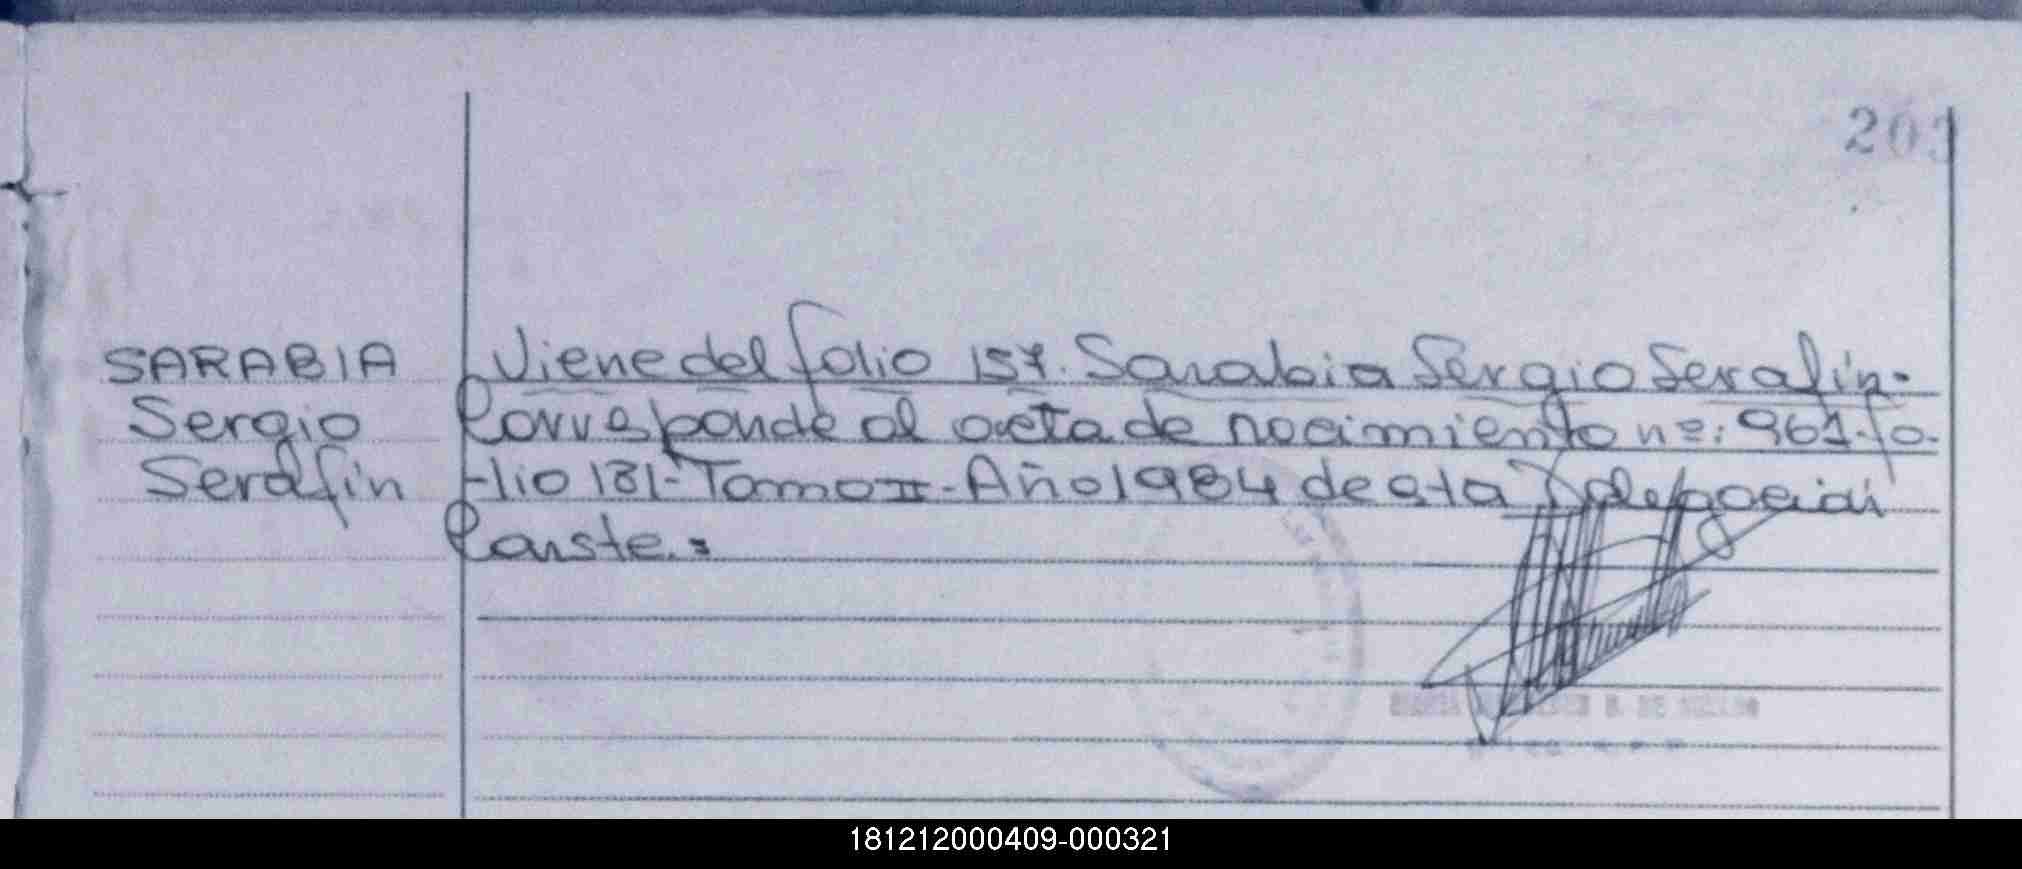 203
SARABIA
Sergio
Serafín
Viene del folio 157. Sarabia Sergio Serafín.
Corresponde al acta de nacimiento nº: 961-fo-
-lio 181- Tomo II - Año 1984 de esta Delegación
Conste.=
181212000409-000321